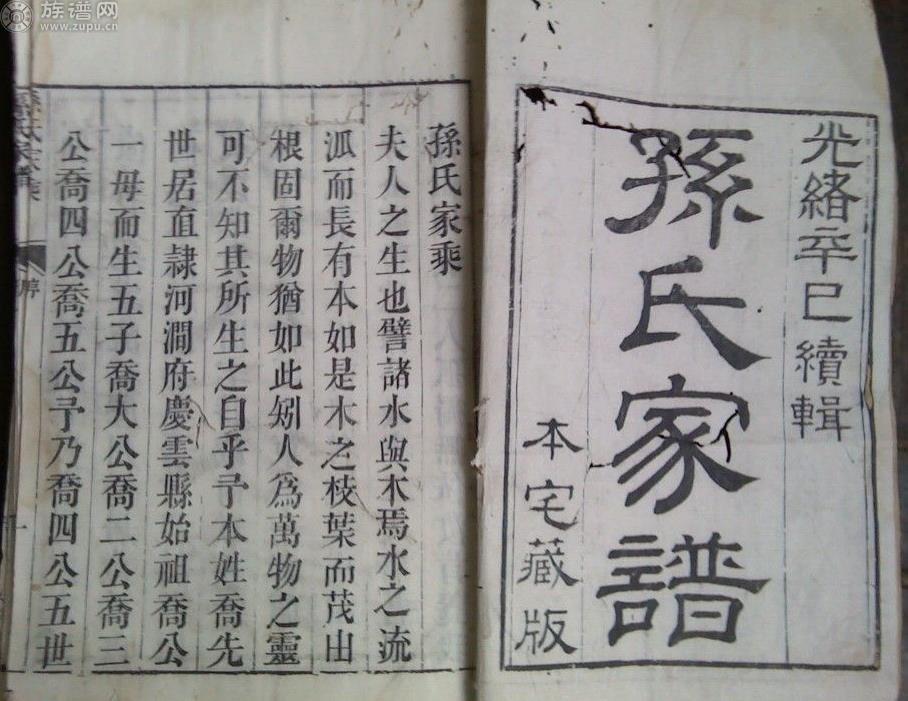 族谱网
www.zupu.cn
光緒辛巳續輯
孫氏家譜
本宅藏版
孫氏家乘
夫人之生也譬諸水與木焉水之流
派而長有本如是木之枝葉而茂出
根固爾物猶如此矧人爲萬物之靈
可不知其所生之自乎予本姓喬先
世居直隷河澗府慶雲縣始祖喬公
一母而生五子喬大公喬二公喬三
公喬四公喬五公予乃喬四公五世